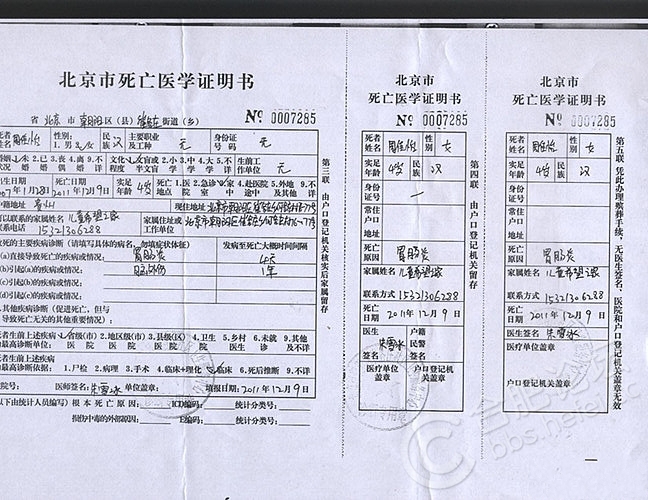 北京市死亡医学证明书
省 北京 市 朝阳 区(县) 街道(乡) № 0007285
性别: 民族 汉 主要职业及工种 无 身份证号码 无
1.男 2.女
婚姻状况 1.未婚 2.已婚 3.丧偶 4.离婚 9.不详 文化程度 1.文盲或半文盲 2.小学 3.中学 4.大学 5.不详 生前工作单位 无
出生日期 死亡日期 2011年12月9日 实足年龄 4岁 死亡地点 1.医院 2.急诊室 3.家 4.赴医院途中 5.外地及其他 9.不详
户籍地址 现住地址
可以联系的家属姓名 儿童希望之家 家属住址或工作单位
联系电话 15321306288
致死的主要疾病诊断(请填写具体的病名,勿填症状体征) 发病至死亡大概时间间隔
(a)直接导致死亡的疾病或情况: 胃肠炎 4天
(b)引起(a)的疾病或情况: 1年
(c)引起(b)的疾病或情况:
其他疾病诊断(促进死亡,但与
导致死亡无关的其他重要情况):
死者生前上述疾病的最高诊断单位: 1.省级(市)医院 2.地区级(市)医院 3.县级(区)医院 4.卫生院 5.乡村医生 6.未就诊 9.其他及不详
死者生前上述疾病的最高诊断依据: 1.尸检 2.病理 3.手术 4.临床+理化 5.临床 6.死后推断 9.不详
住院号: 医师签名 朱雪冰 单位盖章: 填报日期 2011年12月9日
(以下由统计人员编写) 根本死亡原因: ICD编码: 统计分类号:
损伤中毒的外部原因: E编码: 统计分类号:
第三联 由户口登记机关核实后家属留存
北京市
死亡医学证明书
№ 0007285
死者姓名 性别 女
实足年龄 4岁 民族 汉
身份证号 一
常住户口地址
死亡原因 胃肠炎
家属姓名 儿童希望之家
联系方式 15321306288
死亡日期 2011年12月9日
医生签名 朱雪冰 户籍民警签名
医疗单位盖章 户口登记机关盖章
第四联 由户口登记机关留存
北京市
死亡医学证明书
№ 0007285
死者姓名 性别 女
实足年龄 4岁 民族 汉
身份证号
常住户口地址
死亡原因 胃肠炎
家属姓名 儿童希望之家
联系方式 15321306288
死亡日期 2011年12月9日
医生签名 朱雪冰
医疗单位盖章
户口登记机关盖章
第五联 凭此办理殡葬手续,无医生签名、医院和户口登记机关盖章无效
合肥论坛
bbs.hefei.cc